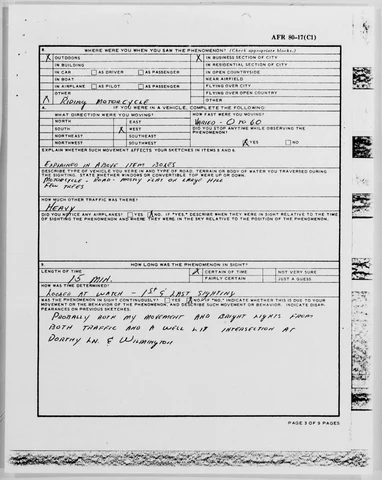 AFR 80-17(C1)
8. WHERE WERE YOU WHEN YOU SAW THE PHENOMENON? (Check appropriate blocks.)
X OUTDOORS X IN BUSINESS SECTION OF CITY
IN BUILDING IN RESIDENTIAL SECTION OF CITY
IN CAR AS DRIVER AS PASSENGER IN OPEN COUNTRYSIDE
IN BOAT NEAR AIRFIELD
IN AIRPLANE AS PILOT AS PASSENGER FLYING OVER CITY
OTHER FLYING OVER OPEN COUNTRY
X RIDING MOTORCYCLE OTHER
A. IF YOU WERE IN A VEHICLE, COMPLETE THE FOLLOWING:
WHAT DIRECTION WERE YOU MOVING? HOW FAST WERE YOU MOVING?
NORTH EAST VARIED - 0 TO 60
SOUTH X WEST DID YOU STOP ANYWHERE WHILE OBSERVING THE
NORTHEAST SOUTHEAST PHENOMENON?
NORTHWEST SOUTHWEST X YES NO
EXPLAIN WHETHER MOVEMENT AFFECTS YOUR SKETCHES IN ITEMS 5 AND 6.
EXPLAINED IN ABOVE ITEM BOXES
DESCRIBE TYPE OF VEHICLE YOU WERE IN AND TYPE OF ROAD, TERRAIN OR BODY OF WATER YOU TRAVERSED DURING
THE SIGHTING. STATE WHETHER WINDOWS OR CONVERTIBLE TOP WERE UP OR DOWN.
MOTORCYCLE - ROAD - MOSTLY FLAT ON LARGE HILL
FEW TREES
HOW MUCH OTHER TRAFFIC WAS THERE?
HEAVY
DID YOU NOTICE ANY AIRPLANES? YES X NO. IF "YES," DESCRIBE WHEN THEY WERE IN SIGHT RELATIVE TO THE TIME
OF SIGHTING THE PHENOMENON AND WHERE THEY WERE IN THE SKY RELATIVE TO THE POSITION OF THE PHENOMENON.
9. HOW LONG WAS THE PHENOMENON IN SIGHT?
LENGTH OF TIME X CERTAIN OF TIME NOT VERY SURE
15 MIN. FAIRLY CERTAIN JUST A GUESS
HOW WAS TIME DETERMINED?
LOOKED AT WATCH - 1ST & LAST SIGHTING
WAS THE PHENOMENON IN SIGHT CONTINUOUSLY? YES X NO. IF "NO," INDICATE WHETHER THIS IS DUE TO YOUR
MOVEMENT OR THE BEHAVIOR OF THE PHENOMENON, AND DESCRIBE SUCH MOVEMENT OR BEHAVIOR. INDICATE DISAP-
PEARANCES ON PREVIOUS SKETCHES.
PROBALLY BOTH MY MOVEMENT AND BRIGHT LIGHTS FROM
BOTH TRAFFIC AND A WELL LIT INTERSECTION AT
DOROTHY LN. & WILMINGTON
PAGE 3 OF 9 PAGES